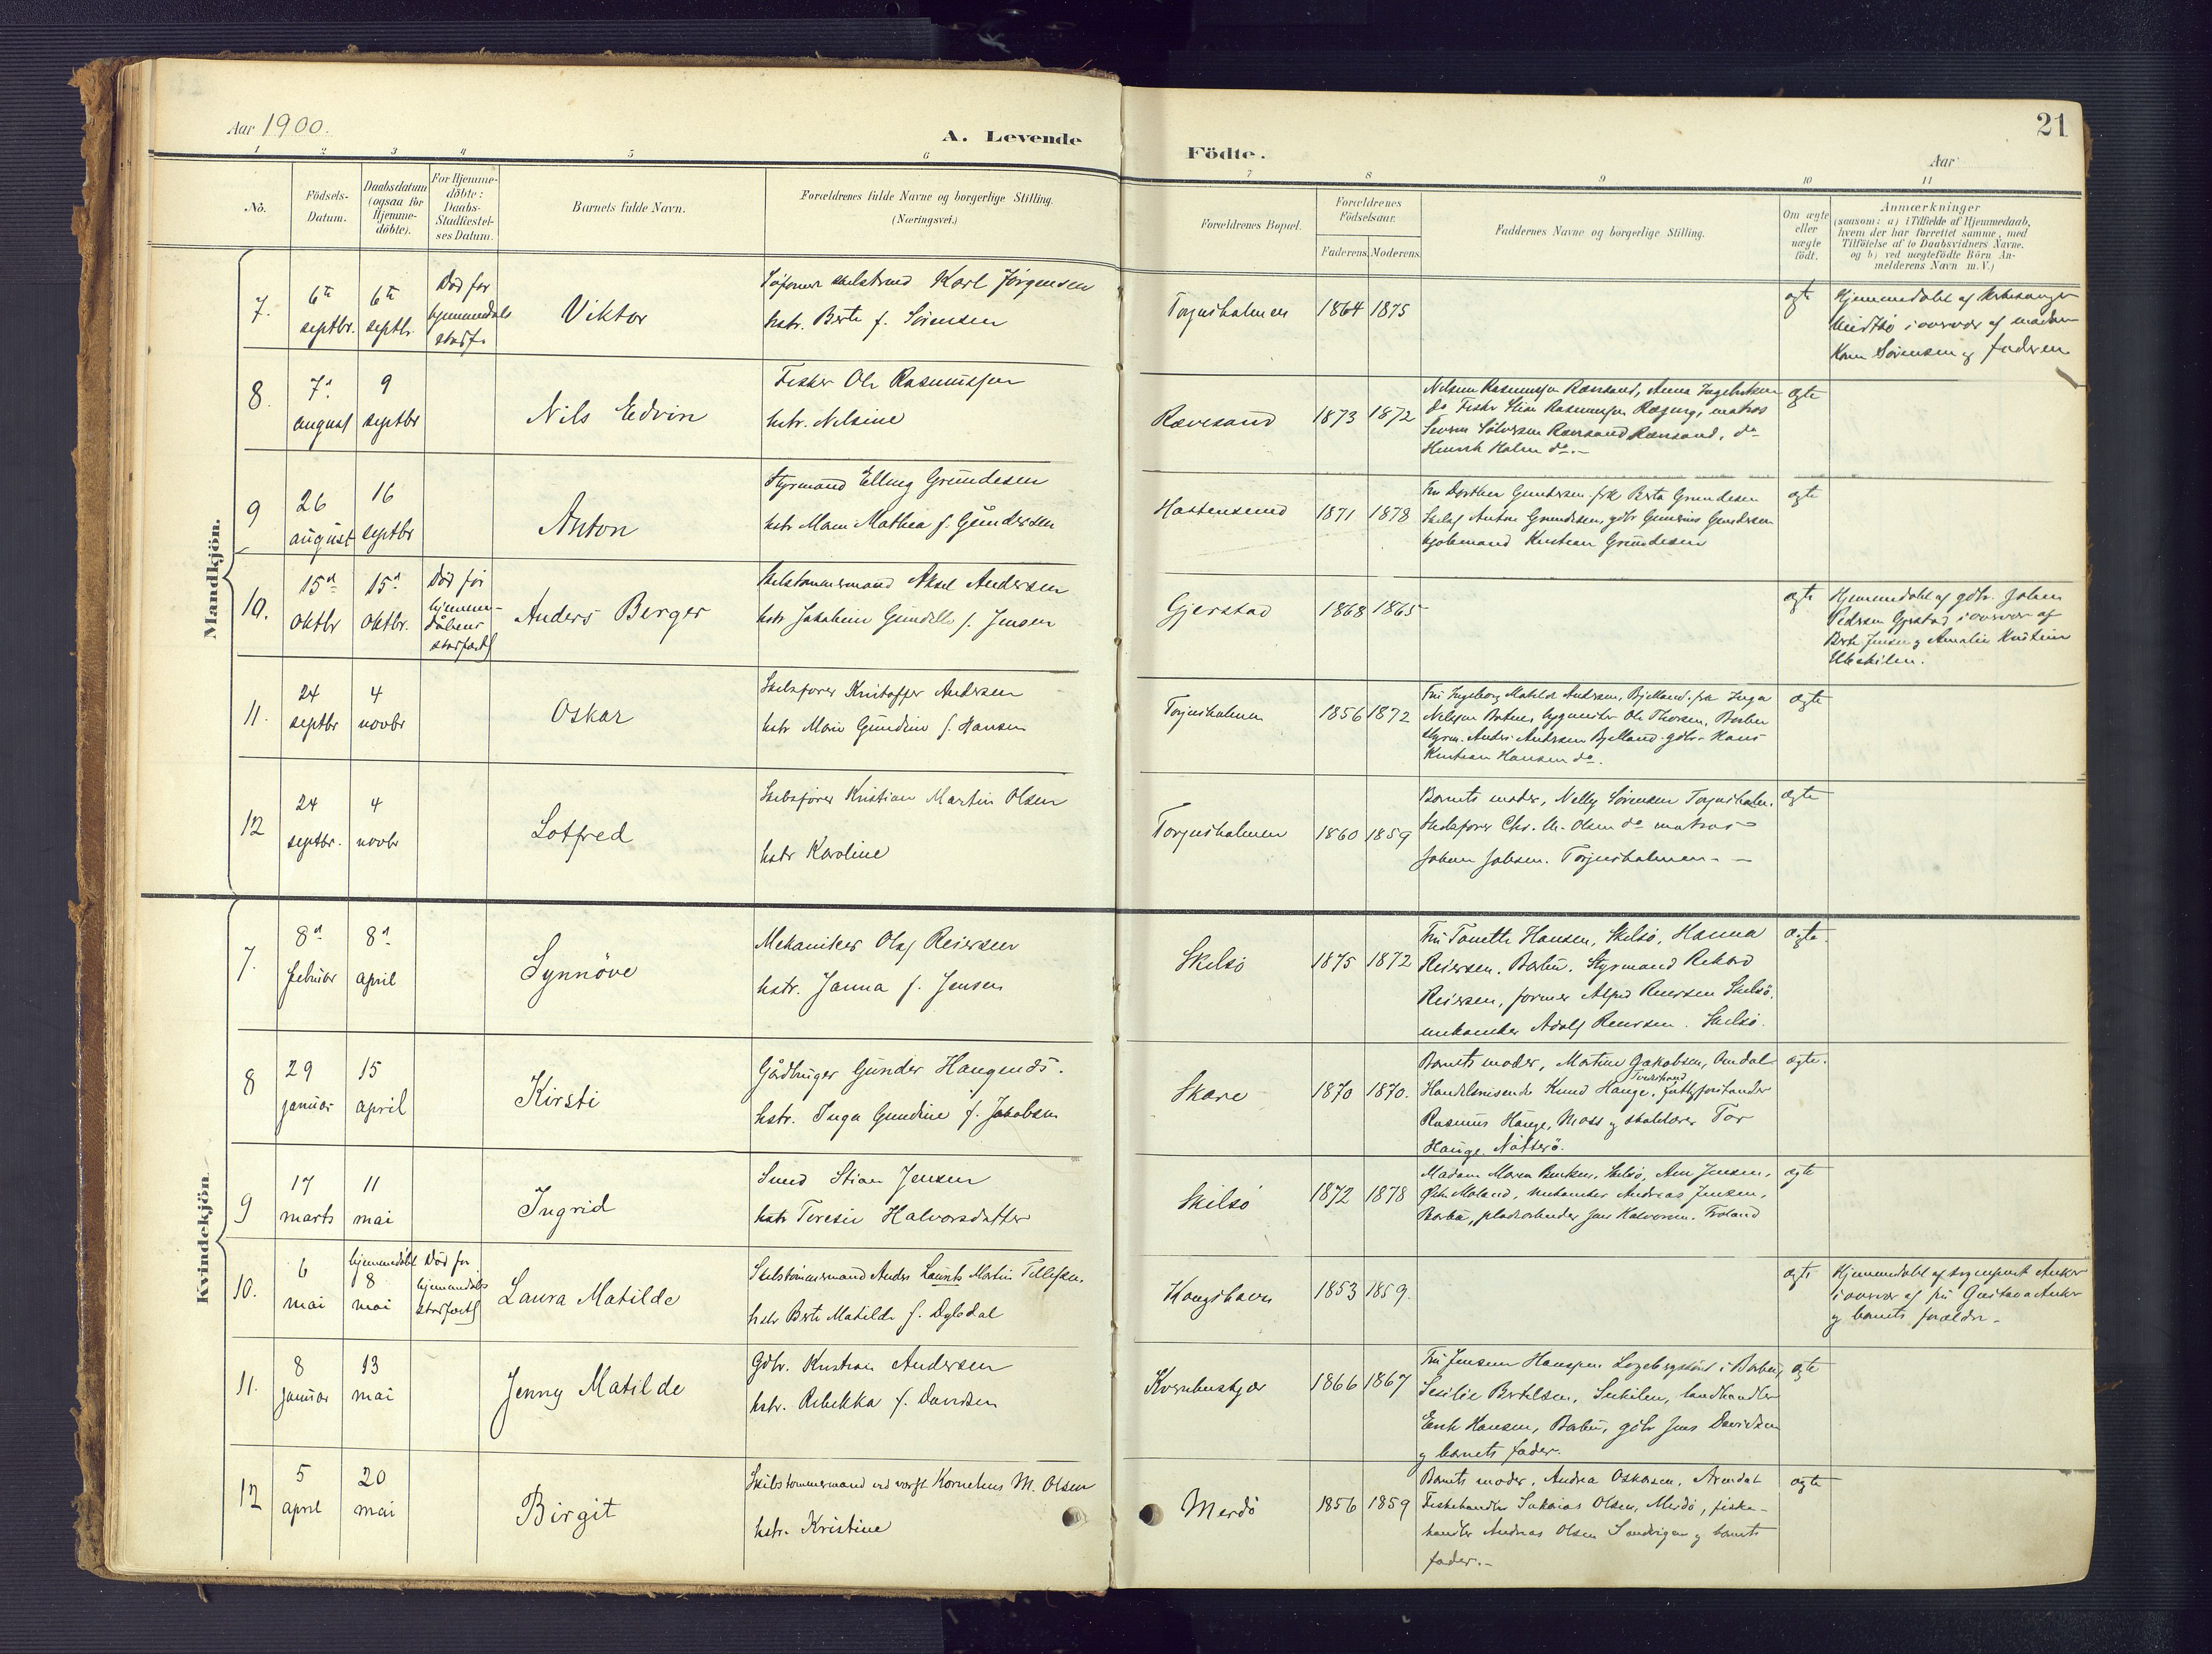 Aar 1900.
A. Levende
Födte.
21
Aar
1 2 3 4 5 6 7 8 9 10 11
No.
Födsels-Datum.
Daabsdatum (ogsaa for Hjemme-döbte).
For Hjemme-döbte: Daabs-Stadfæstel-ses Datum.
Barnets fulde Navn.
Forældrenes fulde Navne og borgerlige Stilling. (Næringsvei.)
Forældrenes Bopæl.
Forældrenes Födselsaar.
Faderens. Moderens.
Faddernes Navne og borgerlige Stilling.
Om ægte eller uægte födt.
Anmærkninger (saasom: a) i Tilfælde af Hjemmedaab, hvem der har forrettet samme, med Tilföielse af to Daabsvidners Navne. og b) ved uægtefödte Börn An-melderens Navn m. V.)
Mandkjön.
7. 6te septbr. 6te septbr. Död før
Viktor
Karl Jørgensen
hstr. Berte f. Sørensen
Torjusholmen 1864 1875
ægte
Hjemmedøbt af
i overvær af
Sørensen og faderen
8. 7de august 9 septbr
Nils Edvin
Fisker Ole Rasmussen
hstr. Nilsine
Rævesand 1873 1872
ægte
9 26 august 16 septbr
Anton
Styrmand Elling Grundesen
hstr Maren Mathea f. Gundersen
Hastensund 1871 1878
Fru Dorthea Gundersen frk Berta Grundesen
Anton Grundesen, gdbr Gunerius Gundersen
Kristian Grundesen
ægte
10. 15de oktbr 15de oktbr. Død før hjemme-dåbens stadfæst
Anders Berger
Skibstømmermand Aksel Andersen
hstr Jakobine f. Jensen
Gjerstad 1868 1865
ægte
Hjemmedøbt af gdbr. Johan
Pedersen Gjerstad i overvær af
Berte Jensen og Amalie Kristine
11. 24 septbr 4 novbr
Oskar
Skibsfører Kristoffer Andersen
hstr Maren Gundine f. Hansen
Torjusholmen 1856 1872
Fru Ingeborg Matilde Andersen, Bjelland. frk Inga
Ole Thorsen, Barbu
styrm. Anders Andersen Bjelland. gdbr Hans
Kristian Hansen do.
ægte
12 24 septbr. 4 novbr
Lotfred
Skibsfører Kristian Martin Olsen
hstr Karoline
Torjusholmen 1860 1859
Barnets moder, Nelly Sørensen Torjusholm.
Skibsfører Chr. M. Olsen do matros
Johan Jobsen. Torjusholmen
ægte
Kvindekjön.
7. 8de februar 8de april
Synnöve
Mekaniker Olaf Reiersen
hstr. Janna f. Jensen
Skilsö 1875 1872
Fru Tonette Hansen, Skilsö, Hanna
Reiersen. Barbu. Styrmand Rikard
Reiersen, former Alfred Reiersen Skilsö.
mekaniker Adolf Reiersen. Skilsö.
ægte.
8 29 januar 15 april
Kirsti
Gårdbruger Gunder
hstr. Inga Gundine f. Jakobsen
Skare 1870 1870.
Barnets moder, Martine Jakobsen, Omdal
Handelsreisende Knud Hauge, Tvedestrand fattigforstander
Rasmus Hauge, Moss og skolelærer Tor
Hauge Nötterö.
ægte.
9 17 marts 11 mai
Ingrid
Smed Stian Jensen
hstr Teresie Halvorsdatter
Skilsö 1872 1878
Madam Maren Bentsen, Skilsö, Ane Jensen,
Moland, mekaniker Andreas Jensen,
Barbu, pladsarbeider Jens Halvorsen. Froland
ægte
10. 6 mai hjemmedøbt 8 mai Död før hjemmedåbs stadfæst
Laura Matilde
Skibstømmermand Anders Laurits Martin Tellefsen
hstr Berte Matilde f. Dybdal
Kongshavn 1853 1859.
ægte
i overvær af fru Gustava Anker
og barnets forældre.
11. 8 januar 13 mai
Jenny Matilde
Gdbr. Kristian Andersen
hstr. Rebekka f. Davidsen
1866 1867
i Barbu,
Sesilie Bertelsen, landhandler
Erik Hansen, Barbu, gdbr Jens Davidsen
og barnets fader.
ægte
12 5 april 20 mai
Birgit
Skibstømmermand ved værft Kornelius M. Olsen
hstr. Kristine
Merdö 1856 1859
Barnets moder, Andrea Oskarsen, Arendal
Fiskehandler Sakarias Olsen, Merdö, fiske-
handler Andreas Olsen Sandvigen og barnets
fader.
ægte